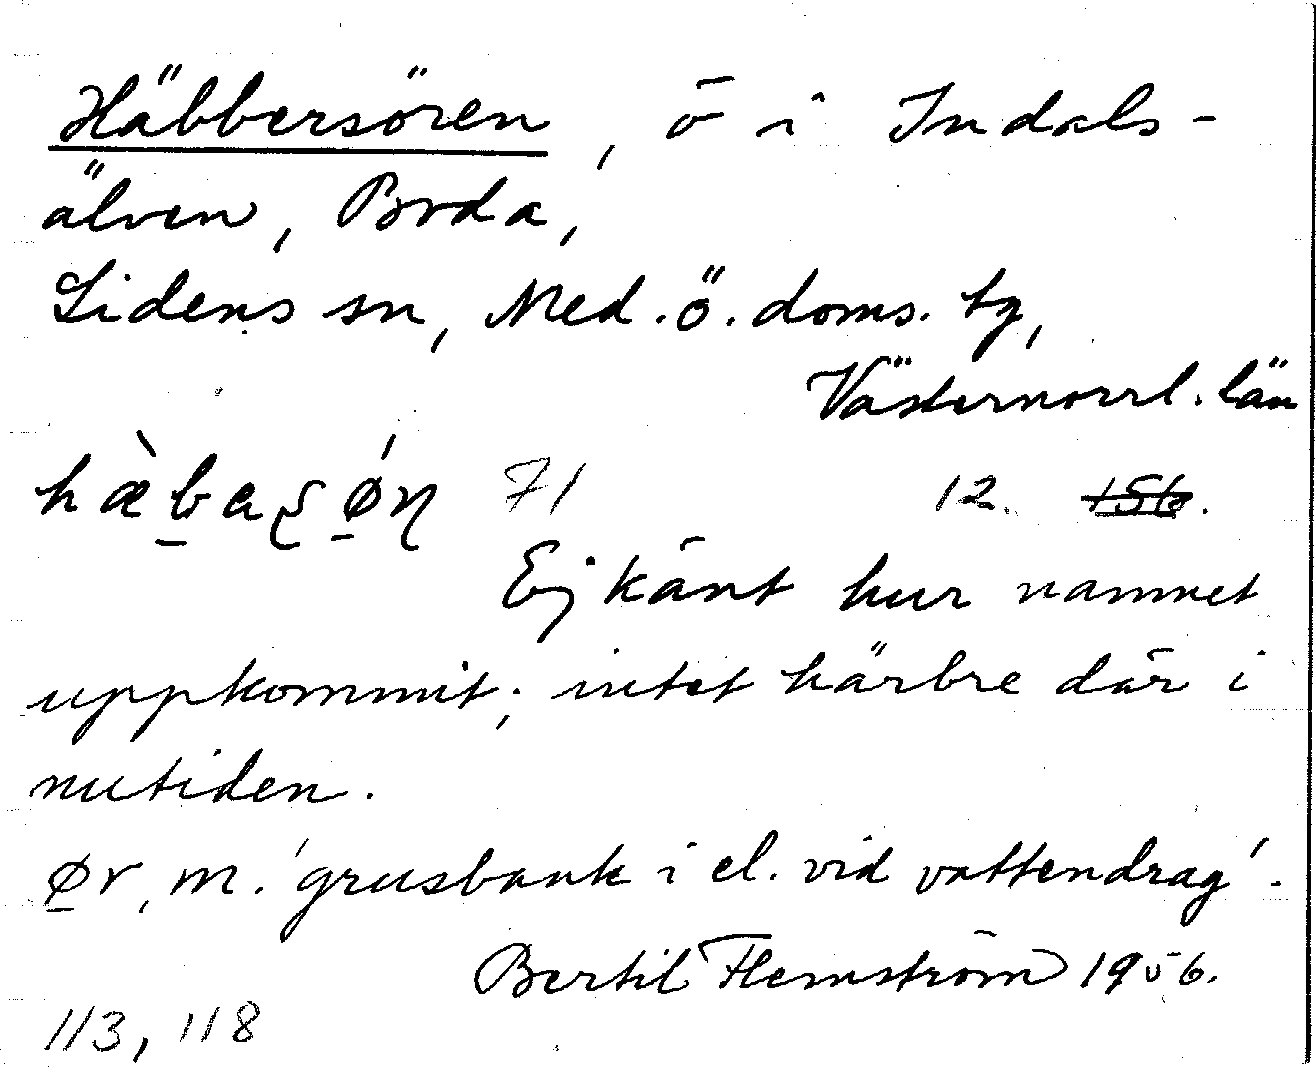 Häbbersören, ö i Indals-
älven, Boda,
Lidens sn, Med.ö.doms. tg,
Västernorrl. län
hæ̀baʂǿɳ 71 12. 156.
Ej känt hur namnet
uppkommit; intet härbre där i
nutiden.
ør, m. 'grusbank i el. vid vattendrag'.
Bertil Flemström 1956.
113, 118